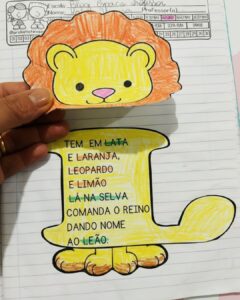 Escola
Nome
Professor(a)
TEM EM LATA
E LARANJA,
LEOPARDO
E LIMÃO
LÁ NA SELVA
COMANDA O REINO
DANDO NOME
AO LEÃO.